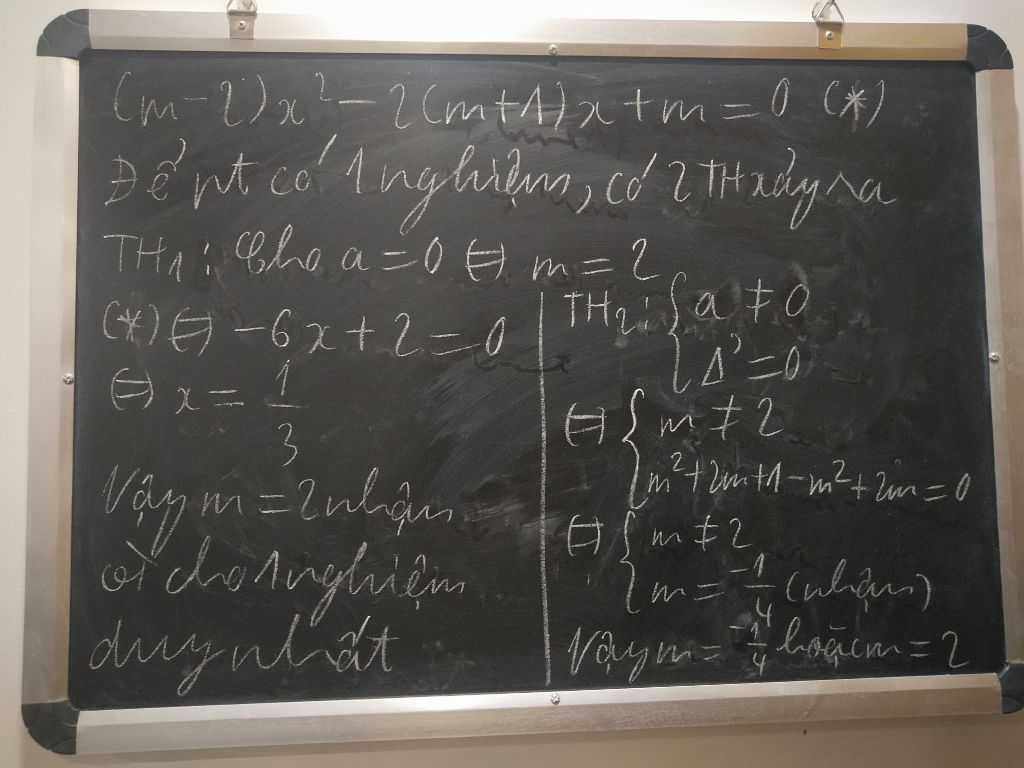 (m-2)x² - 2(m+1)x + m = 0 (*)
Để pt có 1 nghiệm, có 2 TH xảy ra
TH₁: Cho a = 0 ⇔ m = 2
(*) ⇔ -6x + 2 = 0
⇔ x = 1/3
Vậy m = 2 nhận
vì cho 1 nghiệm
duy nhất
TH₂: { a ≠ 0
Δ' = 0
⇔ { m ≠ 2
m² + 2m + 1 - m² + 2m = 0
⇔ { m ≠ 2
m = -1/4 (nhận)
Vậy m = -1/4 hoặc m = 2